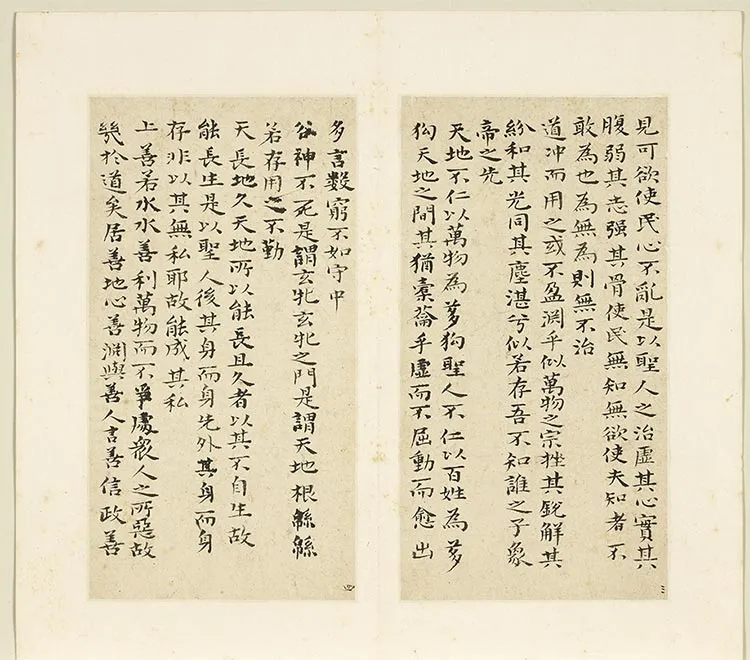 見可欲使民心不亂是以聖人之治虛其心實其
腹弱其志强其骨使民無知無欲使夫知者不
敢為也為無為則無不治
道冲而用之或不盈淵乎似萬物之宗挫其銳解其
紛和其光同其塵湛兮似若存吾不知誰之子象
帝之先
天地不仁以萬物為芻狗聖人不仁以百姓為芻
狗天地之間其猶橐籥乎虛而不屈動而愈出
三
多言數窮不如守中
谷神不死是謂玄牝玄牝之門是謂天地根緜緜
若存用之不勤
天長地久天地所以能長且久者以其不自生故
能長生是以聖人後其身而身先外其身而身
存非以其無私耶故能成其私
上善若水水善利萬物而不爭處衆人之所惡故
幾於道矣居善地心善淵與善人言善信政善
四